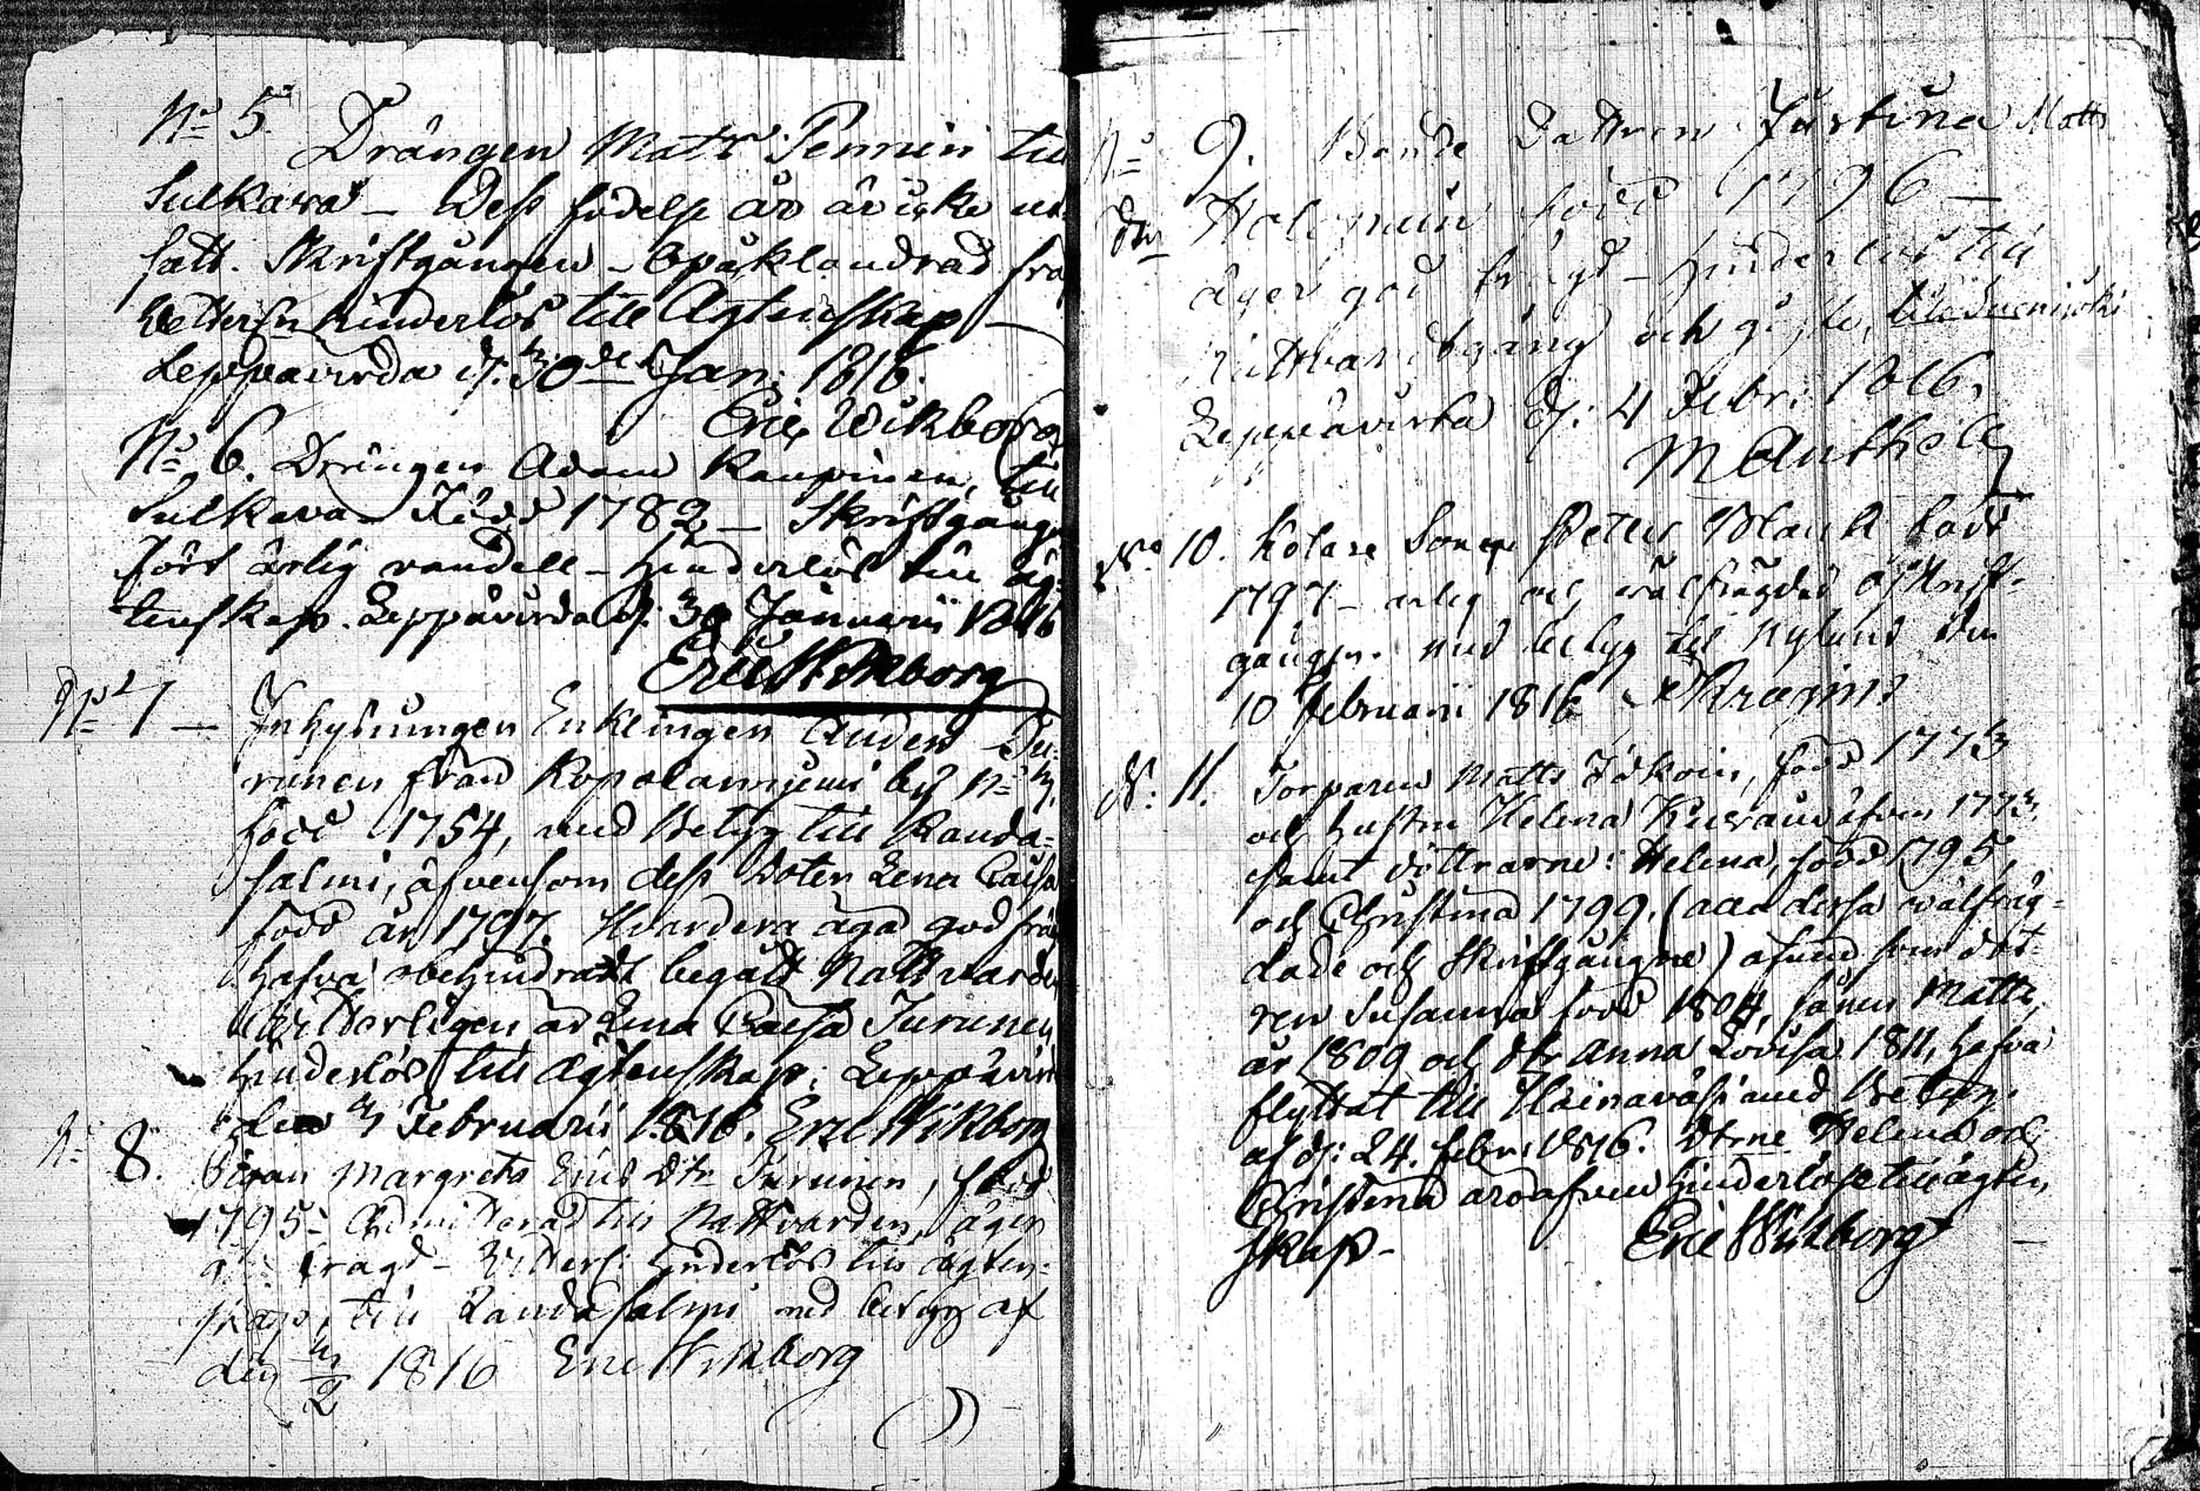 No 5.
Drängen Mats Pennin till
Sulkava – Dess födelse år är icke
satt. Skriftgången – Opåklandrad
Vetterln hinderlös till Ägtenskap –
Leppävirda d. 30de Jan: 1816.
Eric Wikborg
No 6. Drängen Adam Kaupinen, till
Sulkava – Född 1782 – Skriftgången
fört ärlig vandell – Hinderlös till äg-
tenskap. Leppävirda d. 30 Januarii 1816
Eric Wikborg
No 7 – Inhysningen Enklingen Anders Tu-
runen från Kopolanniemi by No
född 1754, med Betyg till Randa-
salmi, äfvensom dess Doter Lena Caisa
född år 1797. Hvardera äga god
hafva obehindradt begått Nattvarden
är Lena Caisa Turunen
hinderlös till ägtenskap: Leppävird
den Februarii 1816. Eric Wikborg
No 8. Pigan Margreta Dtr Turunen, född
1795 – Admitterad till Nattvarden, äger
frägd – Vetterl: hinderlös till ägten-
skap, till Randasalmi med betyg af
den /2 1816 Eric Wikborg
No 9. Bonde Dottren Justina Matts
dtr Holopain född 1796 –
äger god frägd – hinderlös till
Nattvardsgång och gifte,
Leppävirta d: 4 Febr: 1816.
M Anthell
No 10. Kolare Sonen Peter Blank född
1797 – ärlig och välfrägdad o Skrift-
gången. med betyg till Nyland den
10 februarii 1816
N: 11. Torparen Matts Jäkoin, född 1773
och hustru Helena äfven 1773,
samt döttrarne: Helena, född 1795,
och Christina 1799. (alla dessa välfräg-
dade och Skriftgångne) äfvensom dot-
ren Susanna född 1804, sånen Matts,
år 1809 och dtr Anna Lovisa 1811, hafva
flyttat till Heinaväsi med Betyg
af d: 24. febr: 1816. Dtrne Helena och
Christina äro äfven hinderlöse till ägten
skap – Eric Wikborg